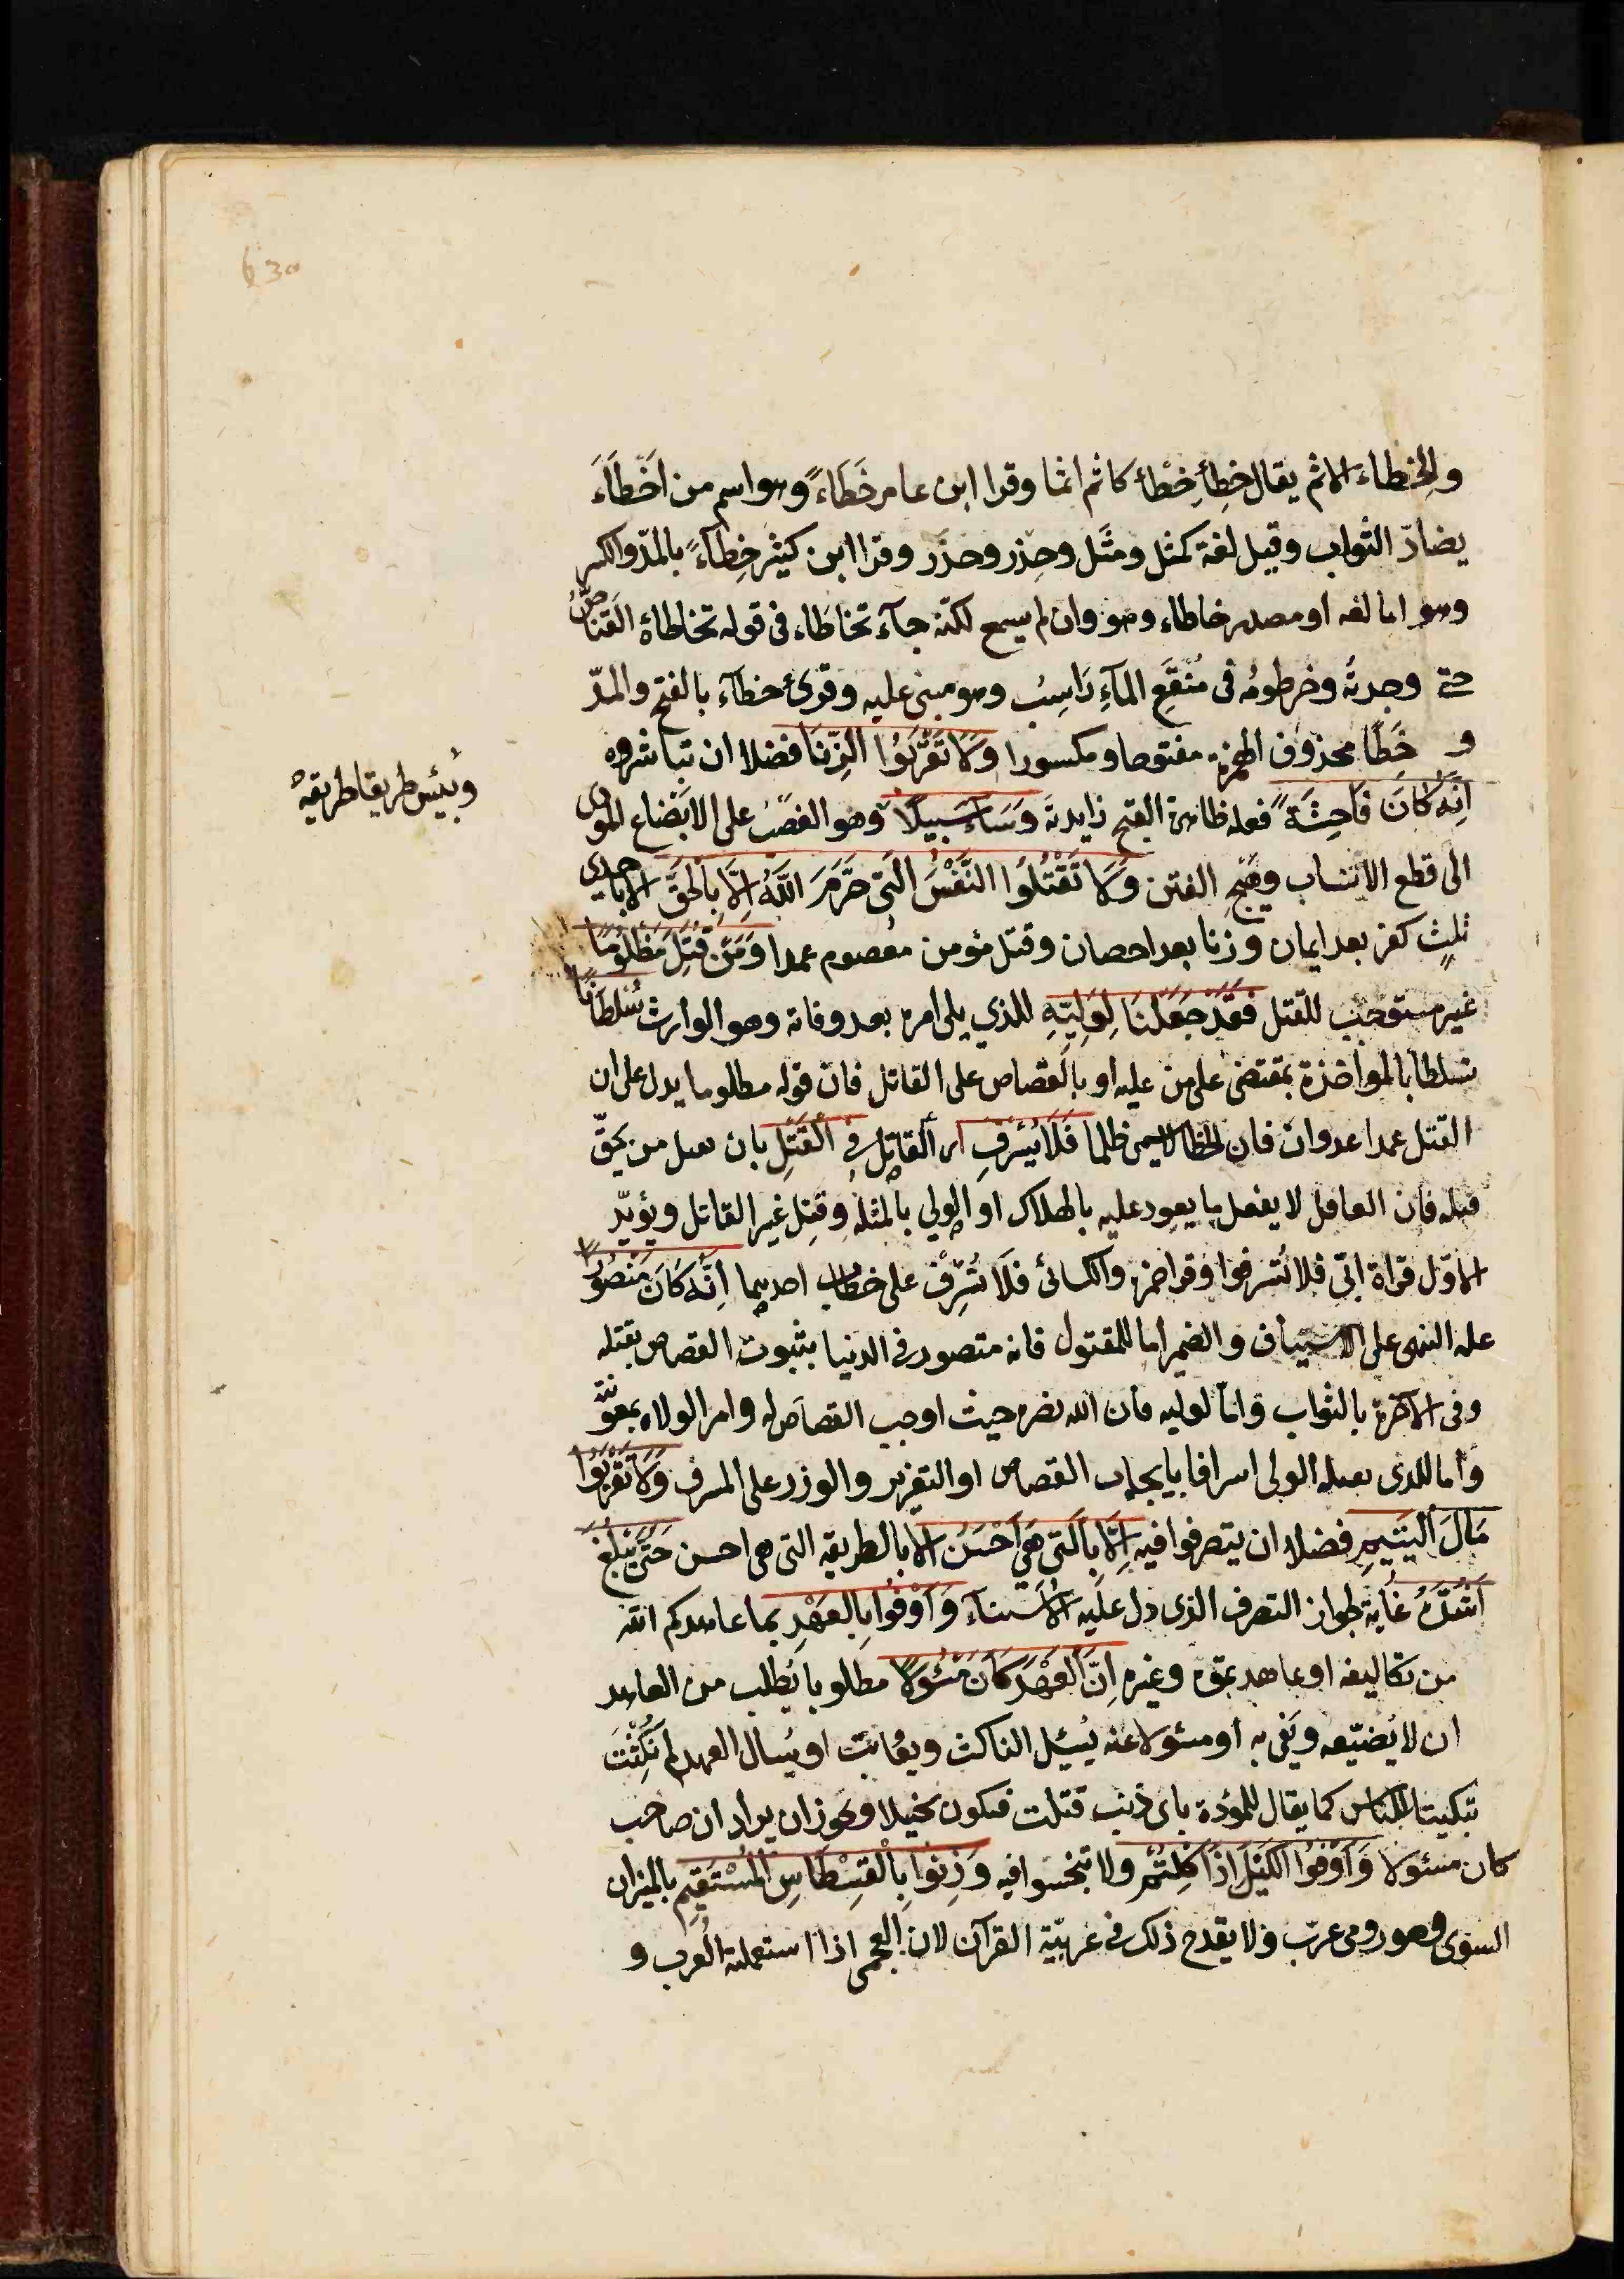 630
والخطاء الاثم يقال خطِأ خِطْأ كاثم اثما وقرا ابن عامر خَطَاءً وهو اسم من اَخْطَاءَ
يضادّ الثواب وقيل لغة كمثل ومثَل وحِذر وحذر وقرا ابن كثير خِطَآءً بالمدّ والكسر
وهو اما لغه او مصدر خاطاء وهو وان لم يسمع لكنّه جآء تخاطَاء فى قوله تخاطاهُ القنّاص
حتے وجدتُه وخرطومُه فى مُنْقَعِ المآءِ رَاسِبُ وهو مبنى عليه وقرئ خطآء بالفتح والمدّ
و خَطًا محذوف الهمزة مفتوحا ومكسورا وَلَا تَقْرَبُوا الزِّنَا فضلا ان تباشروه
اِنَّهُ كَانَ فَاحِشَةً فعله ظاهرة القبح زايدته وَسَاءَ سَبِيلًا وهو الغصبُ على الابضاع المؤدى
وبِئس طريقا طريقه
الى قطع الانساب وهيج الفتن وَلَا تَقْتُلُوا النَّفْسَ الَّتِى حَرَّمَ اللَّهُ اِلَّا بِالْحَقِّ الا باحدى
ثلث كفر بعد ايمان وزنا بعد احصان وقتل مؤمن معصوم عمدا وَمَنْ قُتِلَ مَظْلُومًا
غير مستوجب للقتل فَقَدْ جَعَلْنَا لِوَلِيِّهِ للذي يلى امره بعد وفاته وهو الوارث سُلْطَانًا
تسلطا بالمواخذة بمقتضى على من عليه او بالقصاص على القاتل فان قوله مظلوما يدل على ان
القتل عمدا عدوان فان الخطا لا يسمى ظلما فَلَا يُسْرِفْ اى القاتل فِى الْقَتْلِ بان يقتل من يحقّ
قتله فان العاقل لا يفعل ما يعود عليه بالهلاك او الولي بالمثله وقتل غير القاتل ويؤيّد
الاوّل قراة ابىّ فلا تُسرفوا وقرا حمزة والكسائى فلَا تُسْرِفْ على خطاب احدهما اِنَّهُ كَانَ مَنْصُورًا
عله النهى على الاستيناف والضمير اما للمقتول فانه منصور فى الدنيا بثبوت القصاص بقتله
وفى الآخرة بالثواب وامّا لوليه فان الله نصره حيث اوجب القصاص له وامر الولاه بمعونته
واما للذى يقتله الولى اسرافا بايجاب القصاص او التعزير والوزر على المسرف وَلَا تَقْرَبُوا
مَالَ الْيَتِيمِ فضلا ان يتصرفوا فيه اِلَّا بِالَّتِى هِىَ اَحْسَنُ الا بالطريقه التى هى احسن حَتَّى يَبْلُغَ
اَشُدَّهُ غاية لجواز التصرف الذى دل عليه الاستثناء وَاَوْفُوا بِالْعَهْدِ بما عاهدكم الله
من تكاليفه او عاهدتموه وغيره اِنَّ الْعَهْدَ كَانَ مَسْئُولًا مطلوبا يُطلب من العاهد
ان لا يُضيّعه ويَفى به او مسئولا عنه يُسئل الناكث ويعاتب او يُسال العهد لم نُكِثْتَ
تبكيتا للناكس كما يقال للمؤدة باى ذنب قتلت فيكون تخيلا ويجوز ان يراد ان صاحب
كان مسئولا وَاَوْفُوا الْكَيْلَ اِذَا كِلْتُمْ ولا تبخسوا فيه وَزِنُوا بِالْقِسْطَاسِ الْمُسْتَقِيمِ بالميزان
السوى وهو رومى عرّب ولا يقدح ذلك فى عربيّة القرآن لان العجمى اذا استعملته العرب و